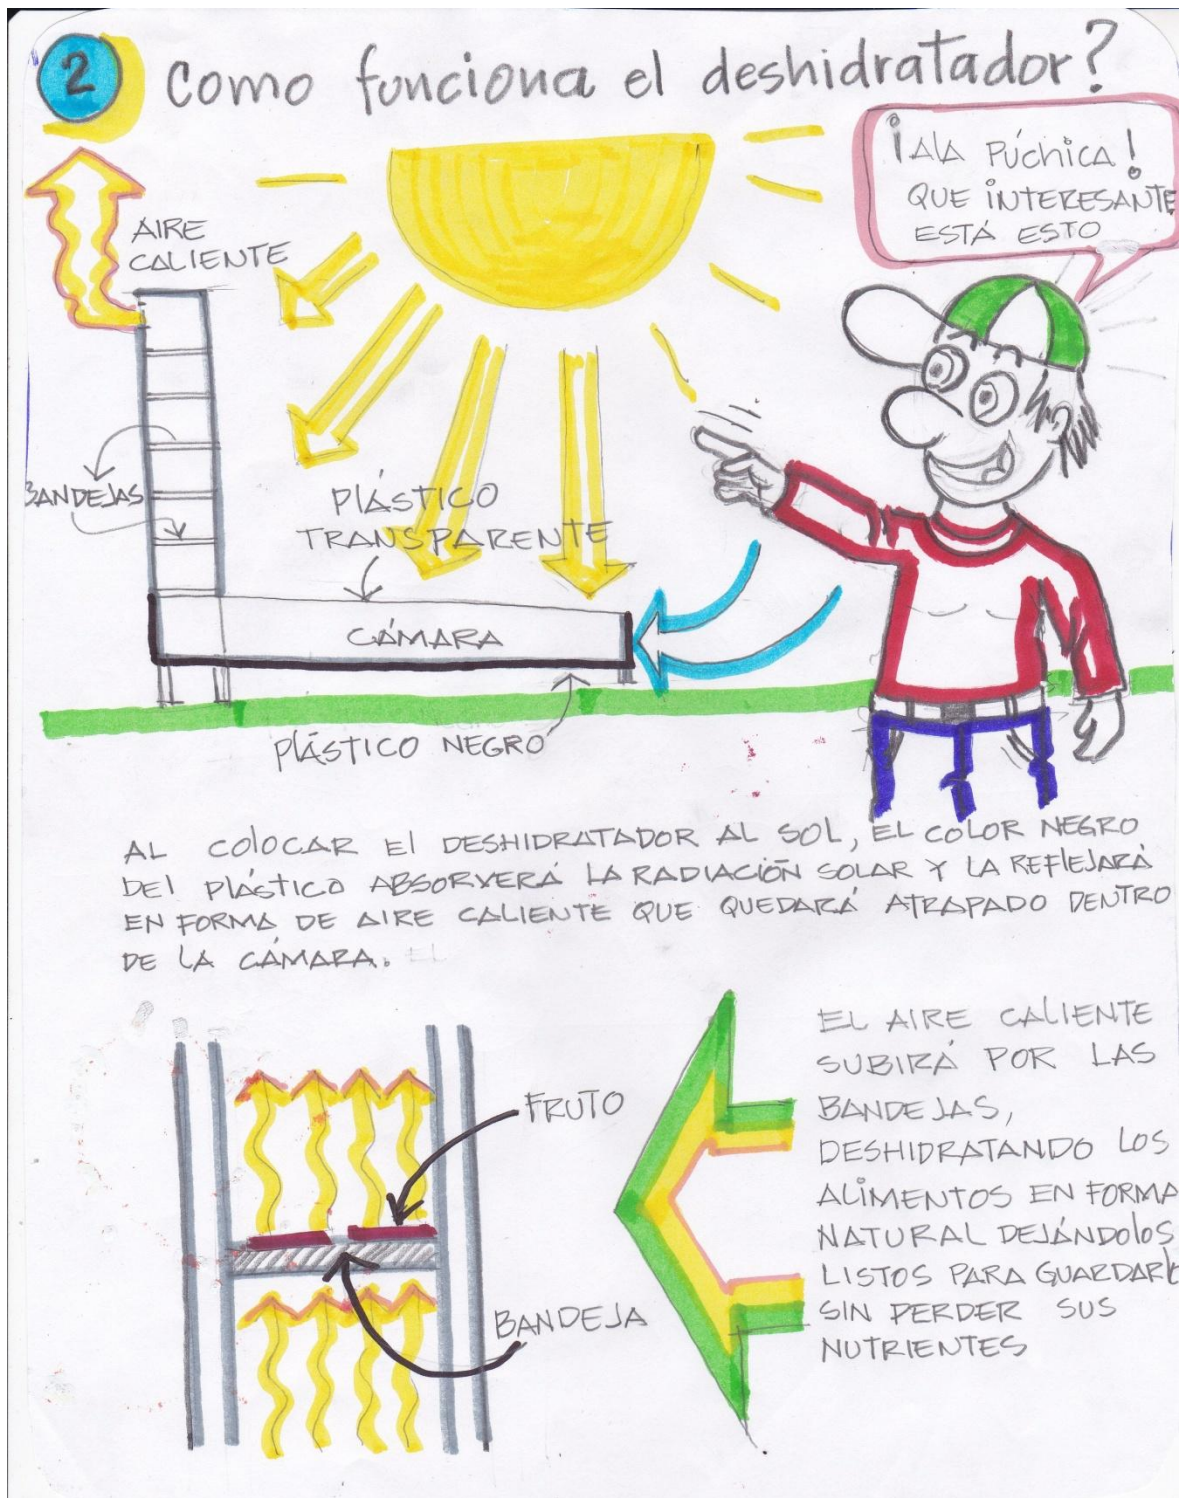 2 Como funciona el deshidratador?
¡ALA PÚCHICA!
QUE INTERESANTE
ESTÁ ESTO
AIRE
CALIENTE
BANDEJAS
PLÁSTICO
TRANSPARENTE
CÁMARA
PLÁSTICO NEGRO
AL COLOCAR El DESHIDRATADOR AL SOL, EL COLOR NEGRO
DEL PLÁSTICO ABSORVERÁ LA RADIACIÓN SOLAR Y LA REFLEJARÁ
EN FORMA DE AIRE CALIENTE QUE QUEDARÁ ATRAPADO DENTRO
DE LA CÁMARA. EL
EL AIRE CALIENTE
SUBIRÁ POR LAS
BANDEJAS,
DESHIDRATANDO LOS
ALIMENTOS EN FORMA
NATURAL DEJÁNDOLOS
LISTOS PARA GUARDARLO
SIN PERDER SUS
NUTRIENTES
FRUTO
BANDEJA